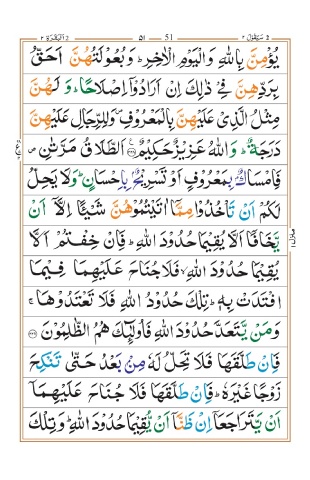 سَيَقُوْلُ ٢ 51 ٥١ اَلْبَقَرَة ٢
يُؤْمِنَّ بِاللّٰهِ وَالْيَوْمِ الْاٰخِرِ ؕ وَبُعُوْلَتُهُنَّ اَحَقُّ
بِرَدِّهِنَّ فِىْ ذٰلِكَ اِنْ اَرَادُوْٓا اِصْلَاحًا ؕ وَلَهُنَّ
مِثْلُ الَّذِىْ عَلَيْهِنَّ بِالْمَعْرُوْفِ ۪ وَلِلرِّجَالِ عَلَيْهِنَّ
دَرَجَةٌ ؕ وَاللّٰهُ عَزِيْزٌ حَكِيْمٌ ﴿٢٢٨﴾ اَلطَّلَاقُ مَرَّتٰنِ ۪
فَاِمْسَاكٌۢ بِمَعْرُوْفٍ اَوْ تَسْرِيْحٌۢ بِاِحْسَانٍ ؕ وَلَا يَحِلُّ
لَكُمْ اَنْ تَاْخُذُوْا مِمَّآ اٰتَيْتُمُوْهُنَّ شَيْئًا اِلَّآ اَنْ
يَّخَافَآ اَلَّا يُقِيْمَا حُدُوْدَ اللّٰهِ ؕ فَاِنْ خِفْتُمْ اَلَّا
يُقِيْمَا حُدُوْدَ اللّٰهِ ۙ فَلَا جُنَاحَ عَلَيْهِمَا فِيْمَا
افْتَدَتْ بِهٖ ؕ تِلْكَ حُدُوْدُ اللّٰهِ فَلَا تَعْتَدُوْهَا ۚ
وَمَنْ يَّتَعَدَّ حُدُوْدَ اللّٰهِ فَاُولٰٓئِكَ هُمُ الظّٰلِمُوْنَ ﴿٢٢٩﴾
فَاِنْ طَلَّقَهَا فَلَا تَحِلُّ لَهٗ مِنْۢ بَعْدُ حَتّٰى تَنْكِحَ
زَوْجًا غَيْرَهٗ ؕ فَاِنْ طَلَّقَهَا فَلَا جُنَاحَ عَلَيْهِمَآ
اَنْ يَّتَرَاجَعَآ اِنْ ظَنَّآ اَنْ يُّقِيْمَا حُدُوْدَ اللّٰهِ ؕ وَتِلْكَ